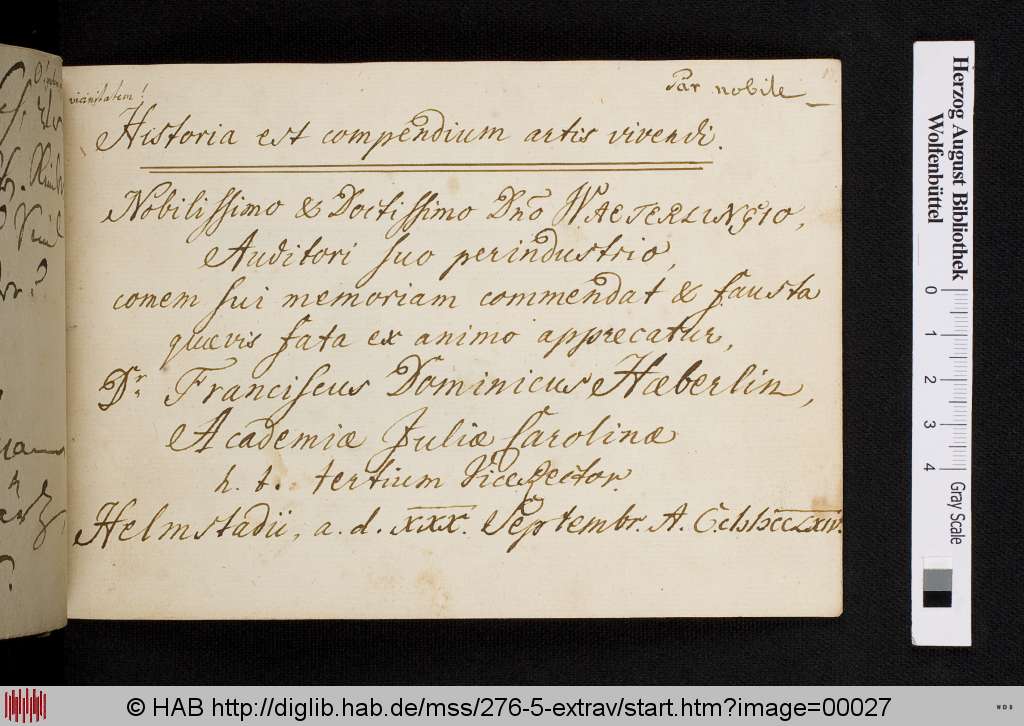 vicinitatem!
Par nobile
Historia est compendium artis vivendi.
Nobilissimo & Doctissimo Dño WAETERLINGIO,
Auditori suo perindustrio,
conem sui memoriam commendat & fausta
quævis fata ex animo apprecatur,
Dr. Franciscus Dominicus Hæberlin,
Academiæ Juliæ Carolinæ
h. t. tertium ViceRector.
Helmstadii, a. d. XXX. Septembr. A.
Herzog August Bibliothek
Wolfenbüttel
0 1 2 3 4
Gray Scale
© HAB http://diglib.hab.de/mss/276-5-extrav/start.htm?image=00027